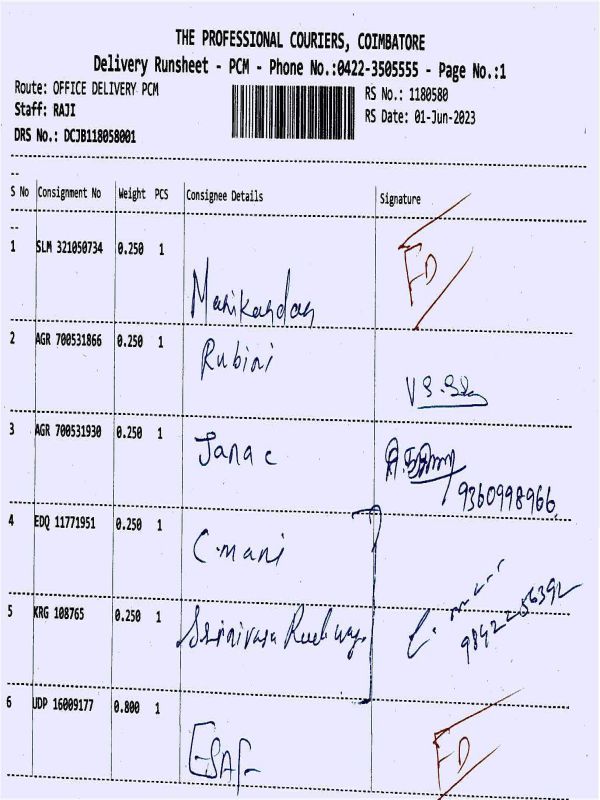 THE PROFESSIONAL COURIERS, COIMBATORE
Delivery Runsheet - PCM - Phone No.:0422-3505555 - Page No.:1
Route: OFFICE DELIVERY PCM
RS No.: 1180580
Staff: RAJI
RS Date: 01-Jun-2023
DRS No.: DCJB118058001
--
S No Consignment No Weight PCS Consignee Details Signature
--
1 SLM 321050734 0.250 1
FD
Manikandan
2 AGR 700531866 0.250 1
Rubini
3 AGR 700531930 0.250 1
Jana c
9360998966
4 EDQ 11771951 0.250 1
C. mani
5 KRG 108765 0.250 1
Srinivasa
6 UDP 16009177 0.800 1
ESAF
FD